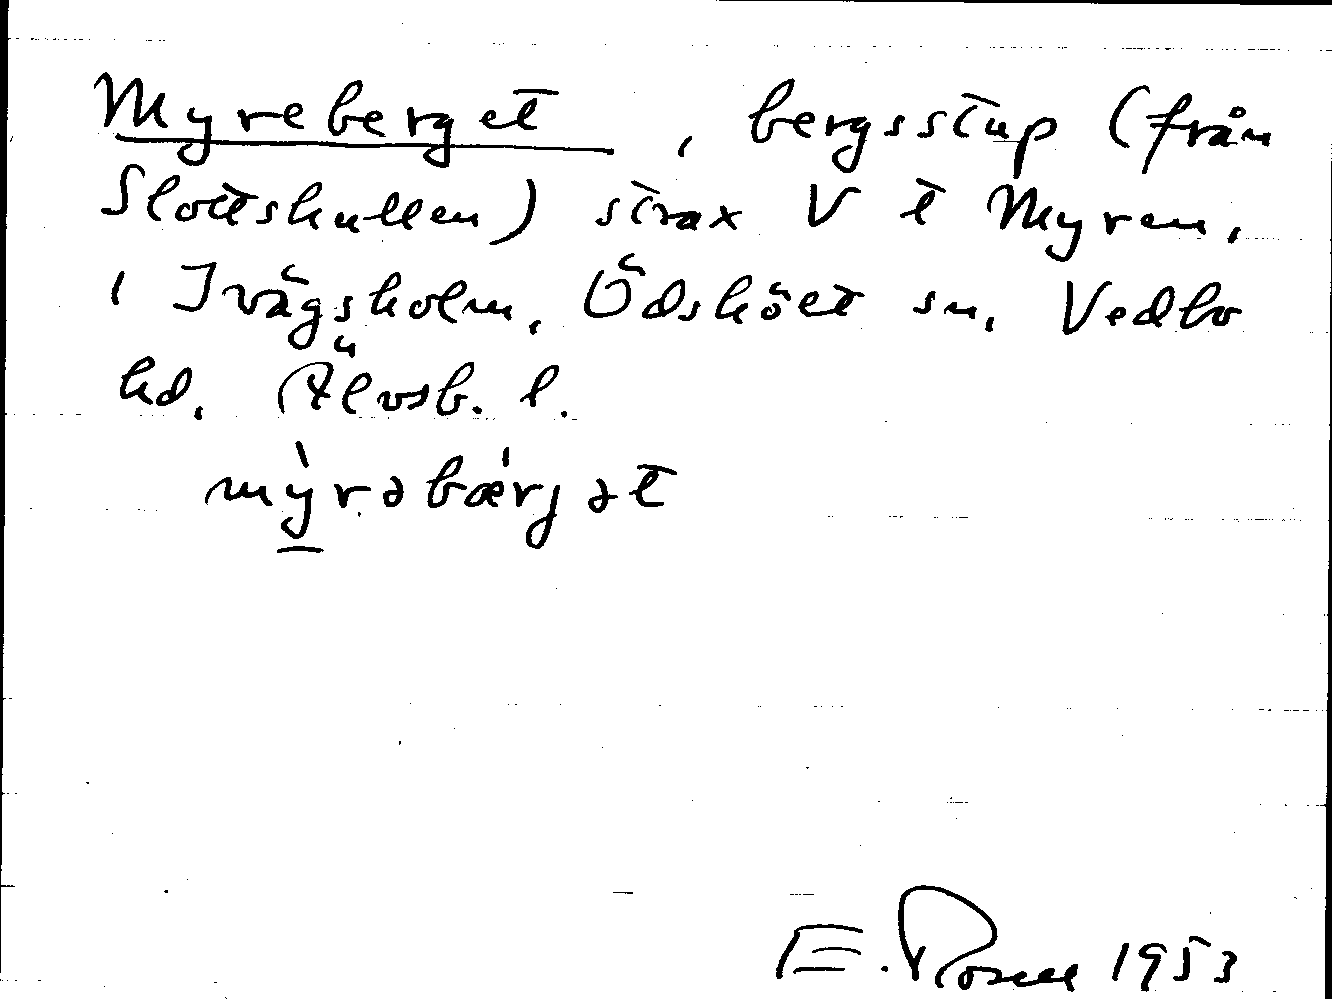 Myreberget, bergsstup (från
Slottskullen) strax V t Myren,
i Ivägsholm, Ödskölt sn, Vedbo
hd. Älvsb. l.
mỳ̲rəbæ̀rjət
E. Rosell 1953